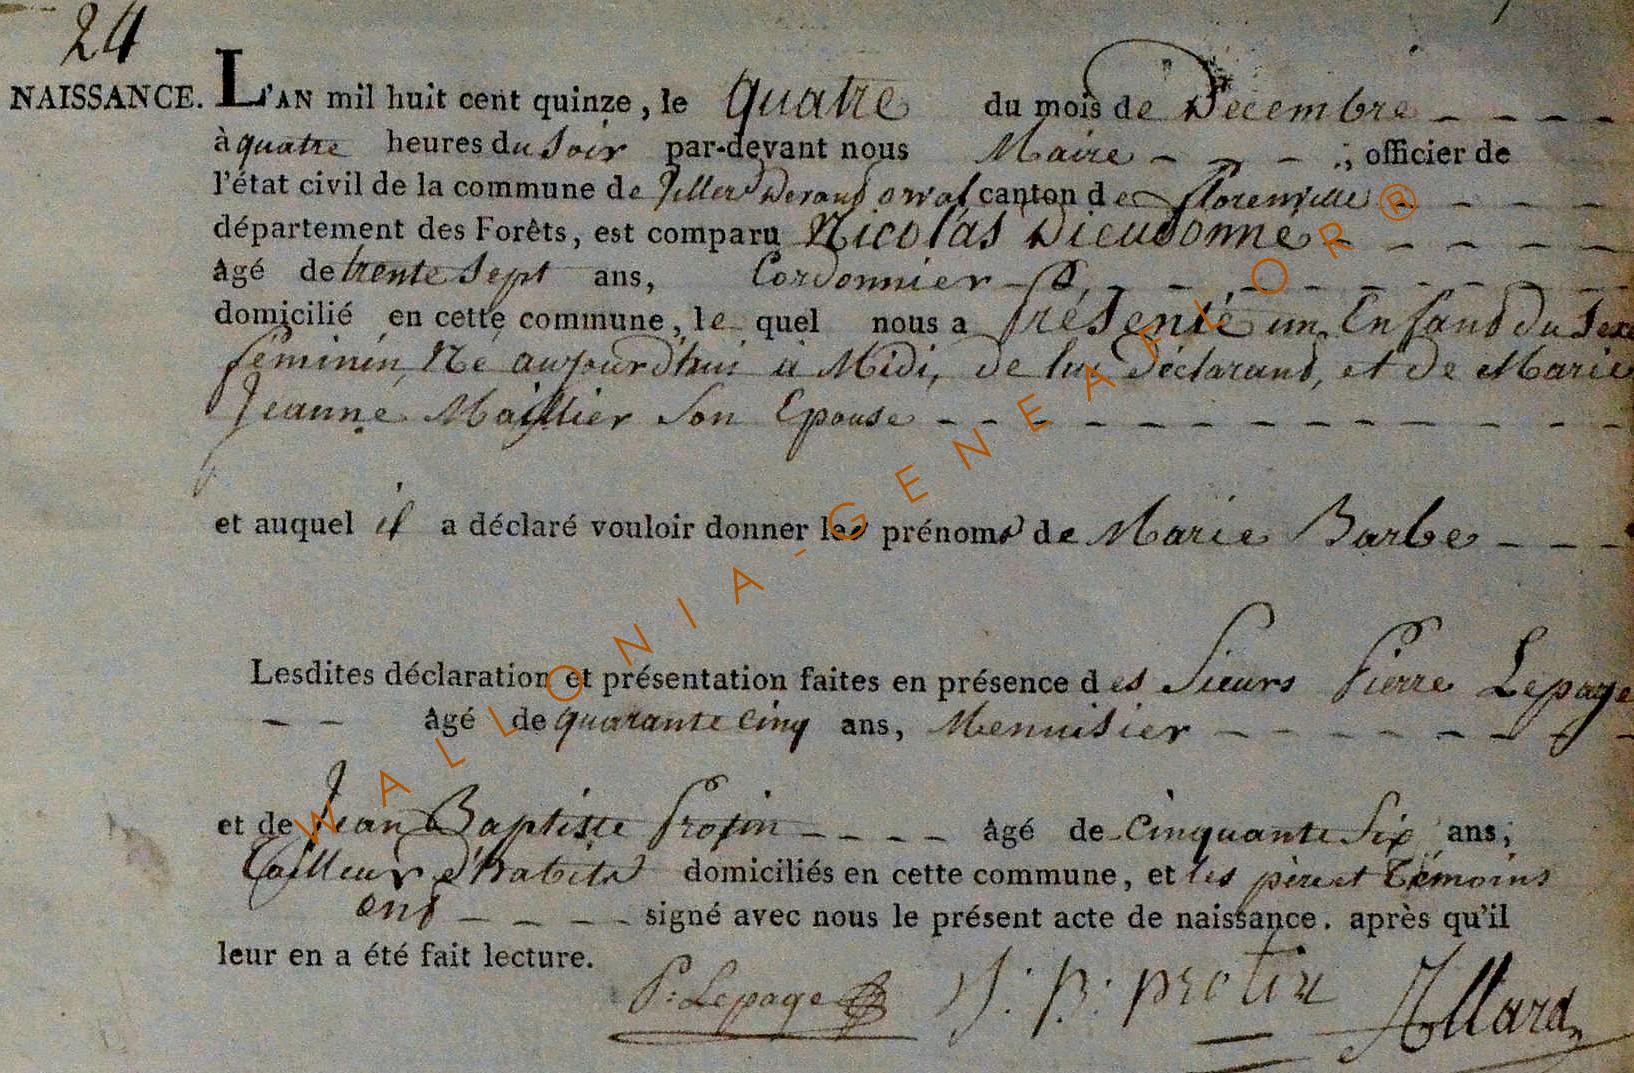 24
NAISSANCE. L'AN mil huit cent quinze, le quatre du mois de Decembre - - - -
à quatre heures du soir par-devant nous Maire - - - ; officier de
l'état civil de la commune de Villers Devand orval canton de florenville - - - -
département des Forêts, est comparu Nicolas Dieudonné - - - - -
âgé de trente sept ans, Cordonnier - - - - - -
domicilié en cette commune, le quel nous a Présenté un Enfand du Sexe
féminin, Né aujourdhui à Midi, de lui Déclarand, et de Marie
Jeanne Maillier Son Epouse - - - - - - - - - - - - -
et auquel il a déclaré vouloir donner les prénoms de Marie Barbe - - -
Lesdites déclaration et présentation faites en présence des Sieurs Pierre Lepage
- - âgé de quarante cinq ans, Menuisier - - - - - - - -
et de Jean Baptiste Protin - - - - âgé de Cinquante Six ans,
Tailleur d'habits domiciliés en cette commune, et les père et Témoins
ond - - - - signé avec nous le présent acte de naissance. après qu'il
leur en a été fait lecture.
P: Lepage J: B: protin Allard
WALLONIA-GENEAFLOR®